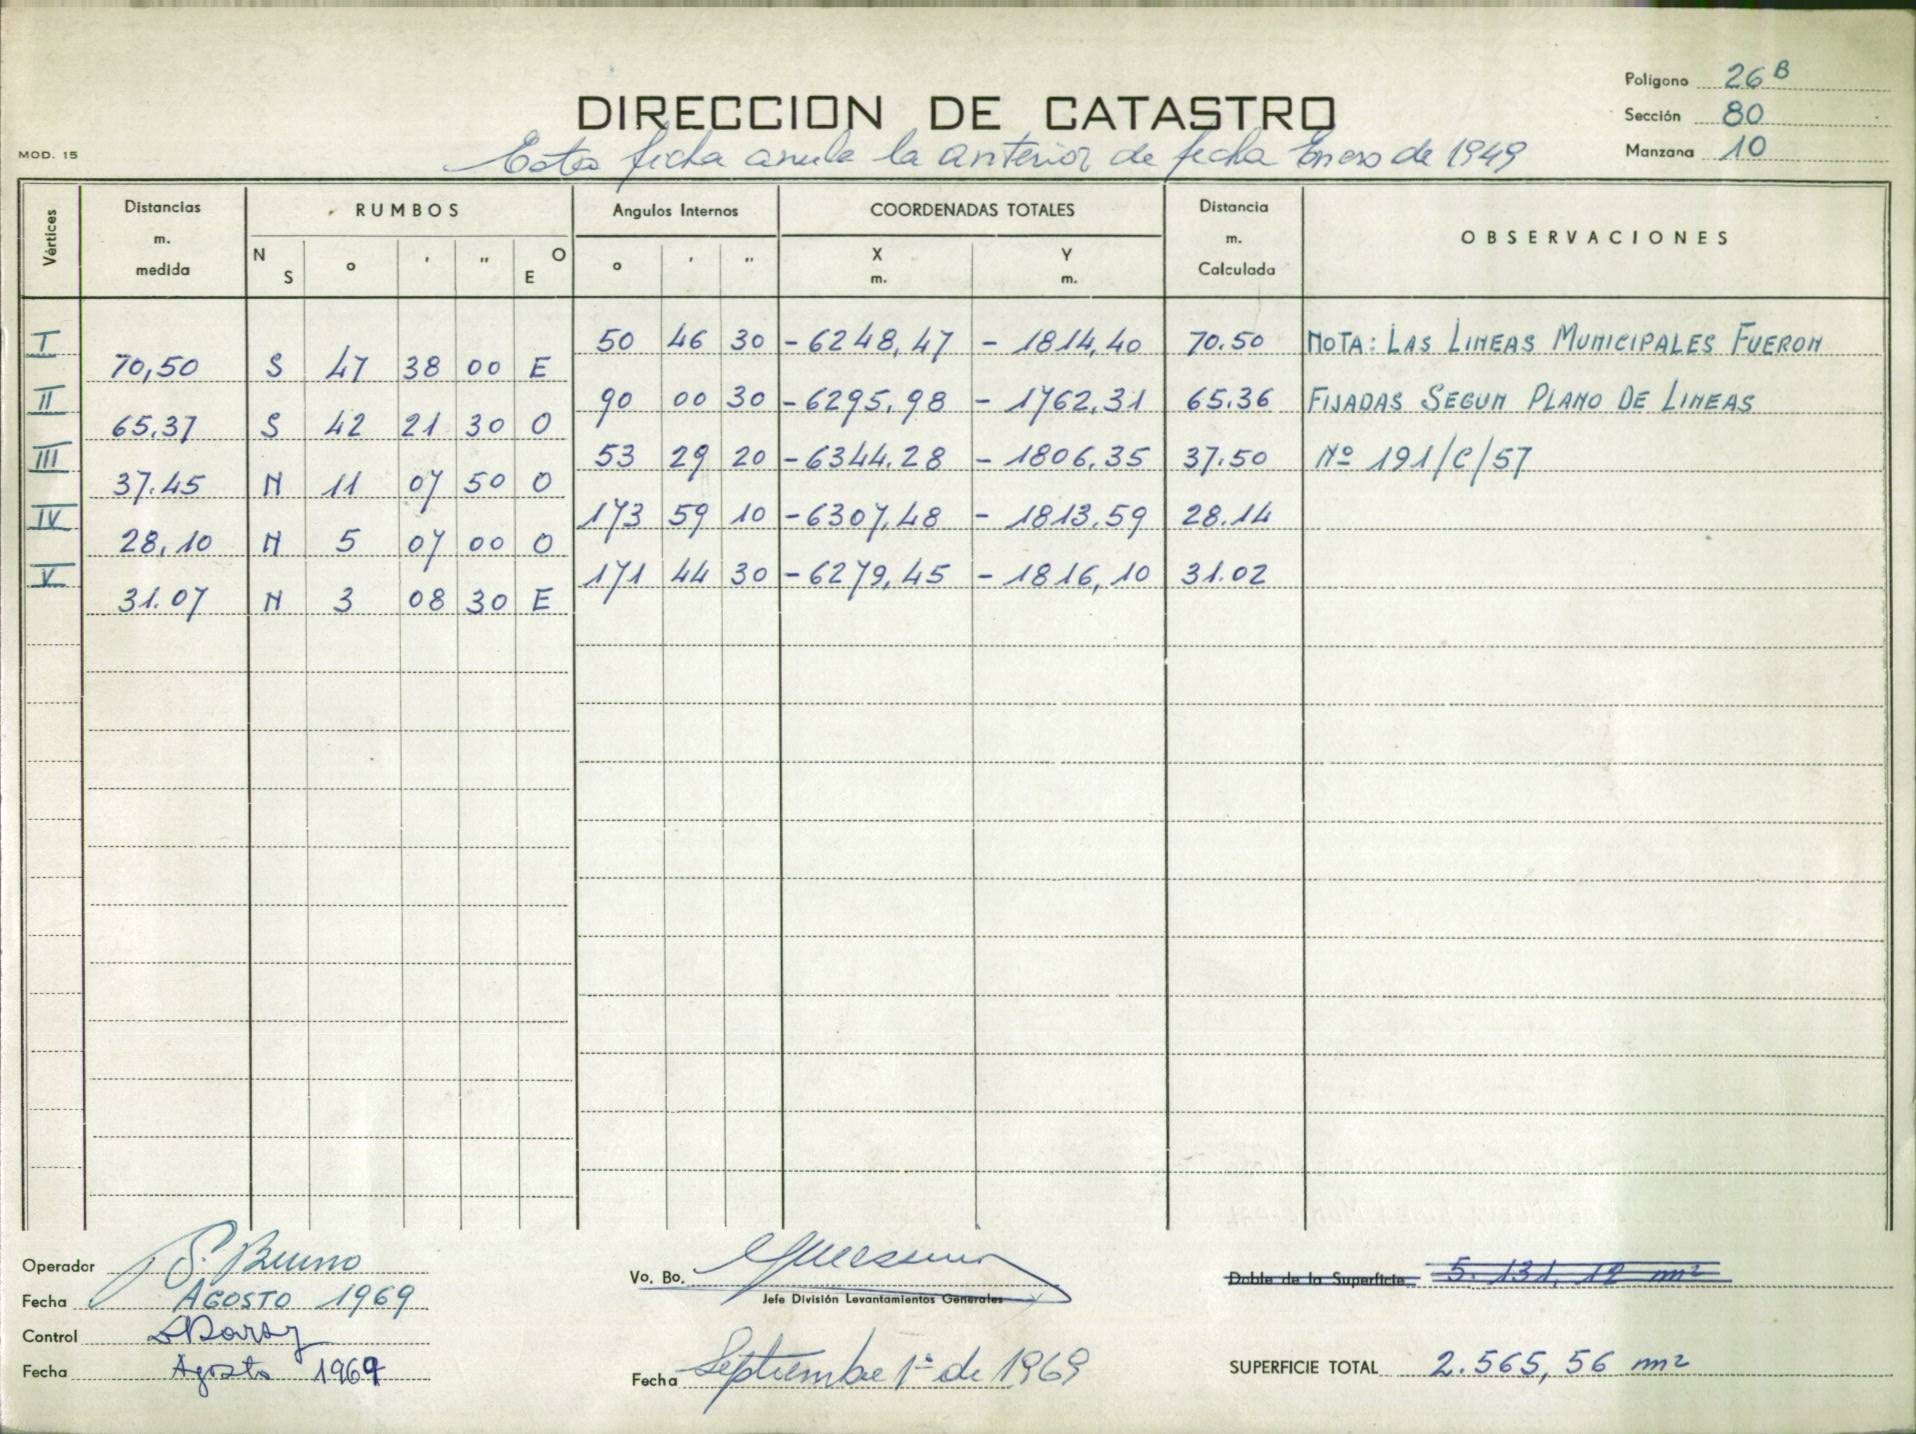 Polígono 26 B
DIRECCION DE CATASTRO
Sección 80
MOD. 15
Esta ficha anula la anterior de fecha Enero de 1949
Manzana 10
Vértices
Distancias m. medida
RUMBOS
Angulos Internos
COORDENADAS TOTALES
Distancia m. Calculada
OBSERVACIONES
N S ° ' " O E
° ' "
X m.
Y m.
I 50 46 30 -6248,47 - 1814,40 70.50 NOTA: LAS LINEAS MUNICIPALES FUERON
70,50 S 47 38 00 E
II 90 00 30 -6295,98 - 1762,31 65.36 FIJADAS SEGUN PLANO DE LINEAS
65.37 S 42 21 30 O
III 53 29 20 -6344.28 - 1806,35 37.50 Nº 191/C/57
37.45 N 11 07 50 O
IV 173 59 10 -6307,48 - 1813,59 28.14
28,10 N 5 07 00 O
V 171 44 30 -6279,45 - 1816,10 31.02
31.07 N 3 08 30 E
Operador S. Bruno
Fecha AGOSTO 1969
Control
Fecha Agosto 1969
Vo. Bo.
Jefe División Levantamientos Generales
Fecha Septiembre 1º de 1969
Doble de la Superficie 5.131,12 m²
SUPERFICIE TOTAL 2.565,56 m²